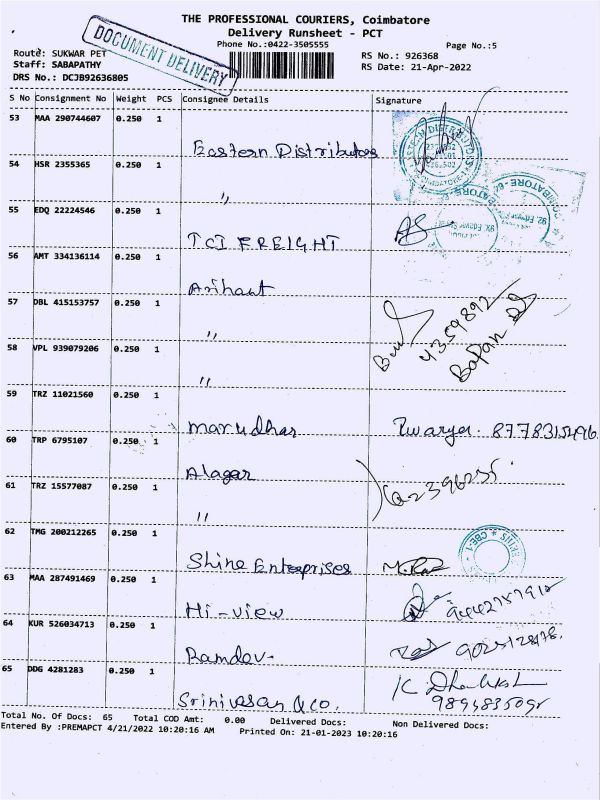 THE PROFESSIONAL COURIERS, Coimbatore
Delivery Runsheet - PCT
Phone No.:0422-3505555
Page No.:5
DOCUMENT DELIVERY
Route: SUKWAR PET
RS No.: 926368
Staff: SABAPATHY
RS Date: 21-Apr-2022
DRS No.: DCJB92636805
S No Consignment No Weight PCS Consignee Details Signature
53 MAA 290744607 0.250 1
Eastern Distributors
54 HSR 2355365 0.250 1
"
55 EDQ 22224546 0.250 1
TCI FREIGHT
56 AMT 334136114 0.250 1
Arihant
57 DBL 415153757 0.250 1
"
58 VPL 939079206 0.250 1
"
59 TRZ 11021560 0.250 1
Marudhar
60 TRP 6795107 0.250 1
Alagar
61 TRZ 15577087 0.250 1
"
62 TMG 200212265 0.250 1
Shine Enterprises
63 MAA 287491469 0.250 1
Hi-view
64 KUR 526034713 0.250 1
Ramdev-
65 DDG 4281283 0.250 1
Srinivasan & co.
Total No. Of Docs: 65 Total COD Amt: 0.00 Delivered Docs: Non Delivered Docs:
Entered By :PREMAPCT 4/21/2022 10:20:16 AM Printed On: 21-01-2023 10:20:16